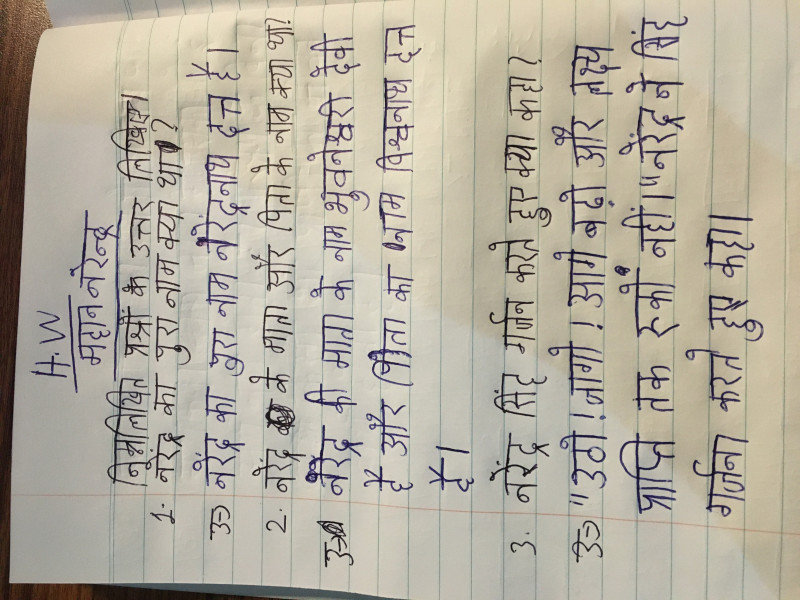 H.W
महान नरेन्द्र
निम्नलिखित प्रश्नों के उत्तर लिखिए।
1. नरेंद्र का पुरा नाम क्या था?
उ→ नरेंद्र का पुरा नाम नरेंद्रनाथ दत्त हैं।
2. नरेंद्र के माता और पिता के नाम क्या था?
उ→ नरेंद्र की माता के नाम भुवनेश्वरी देवी
हैं और पिता का नाम विश्वनाथ दत्त
हैं।
3. नरेंद्र सिंह गर्जन करते हुए क्या कहा?
उ→ "उठो! जागो! आगे बढ़ो और लक्ष्य
प्राप्ति तक रुको नहीं।" नरेंद्र ने सिंह
गर्जना करते हुए कहा।